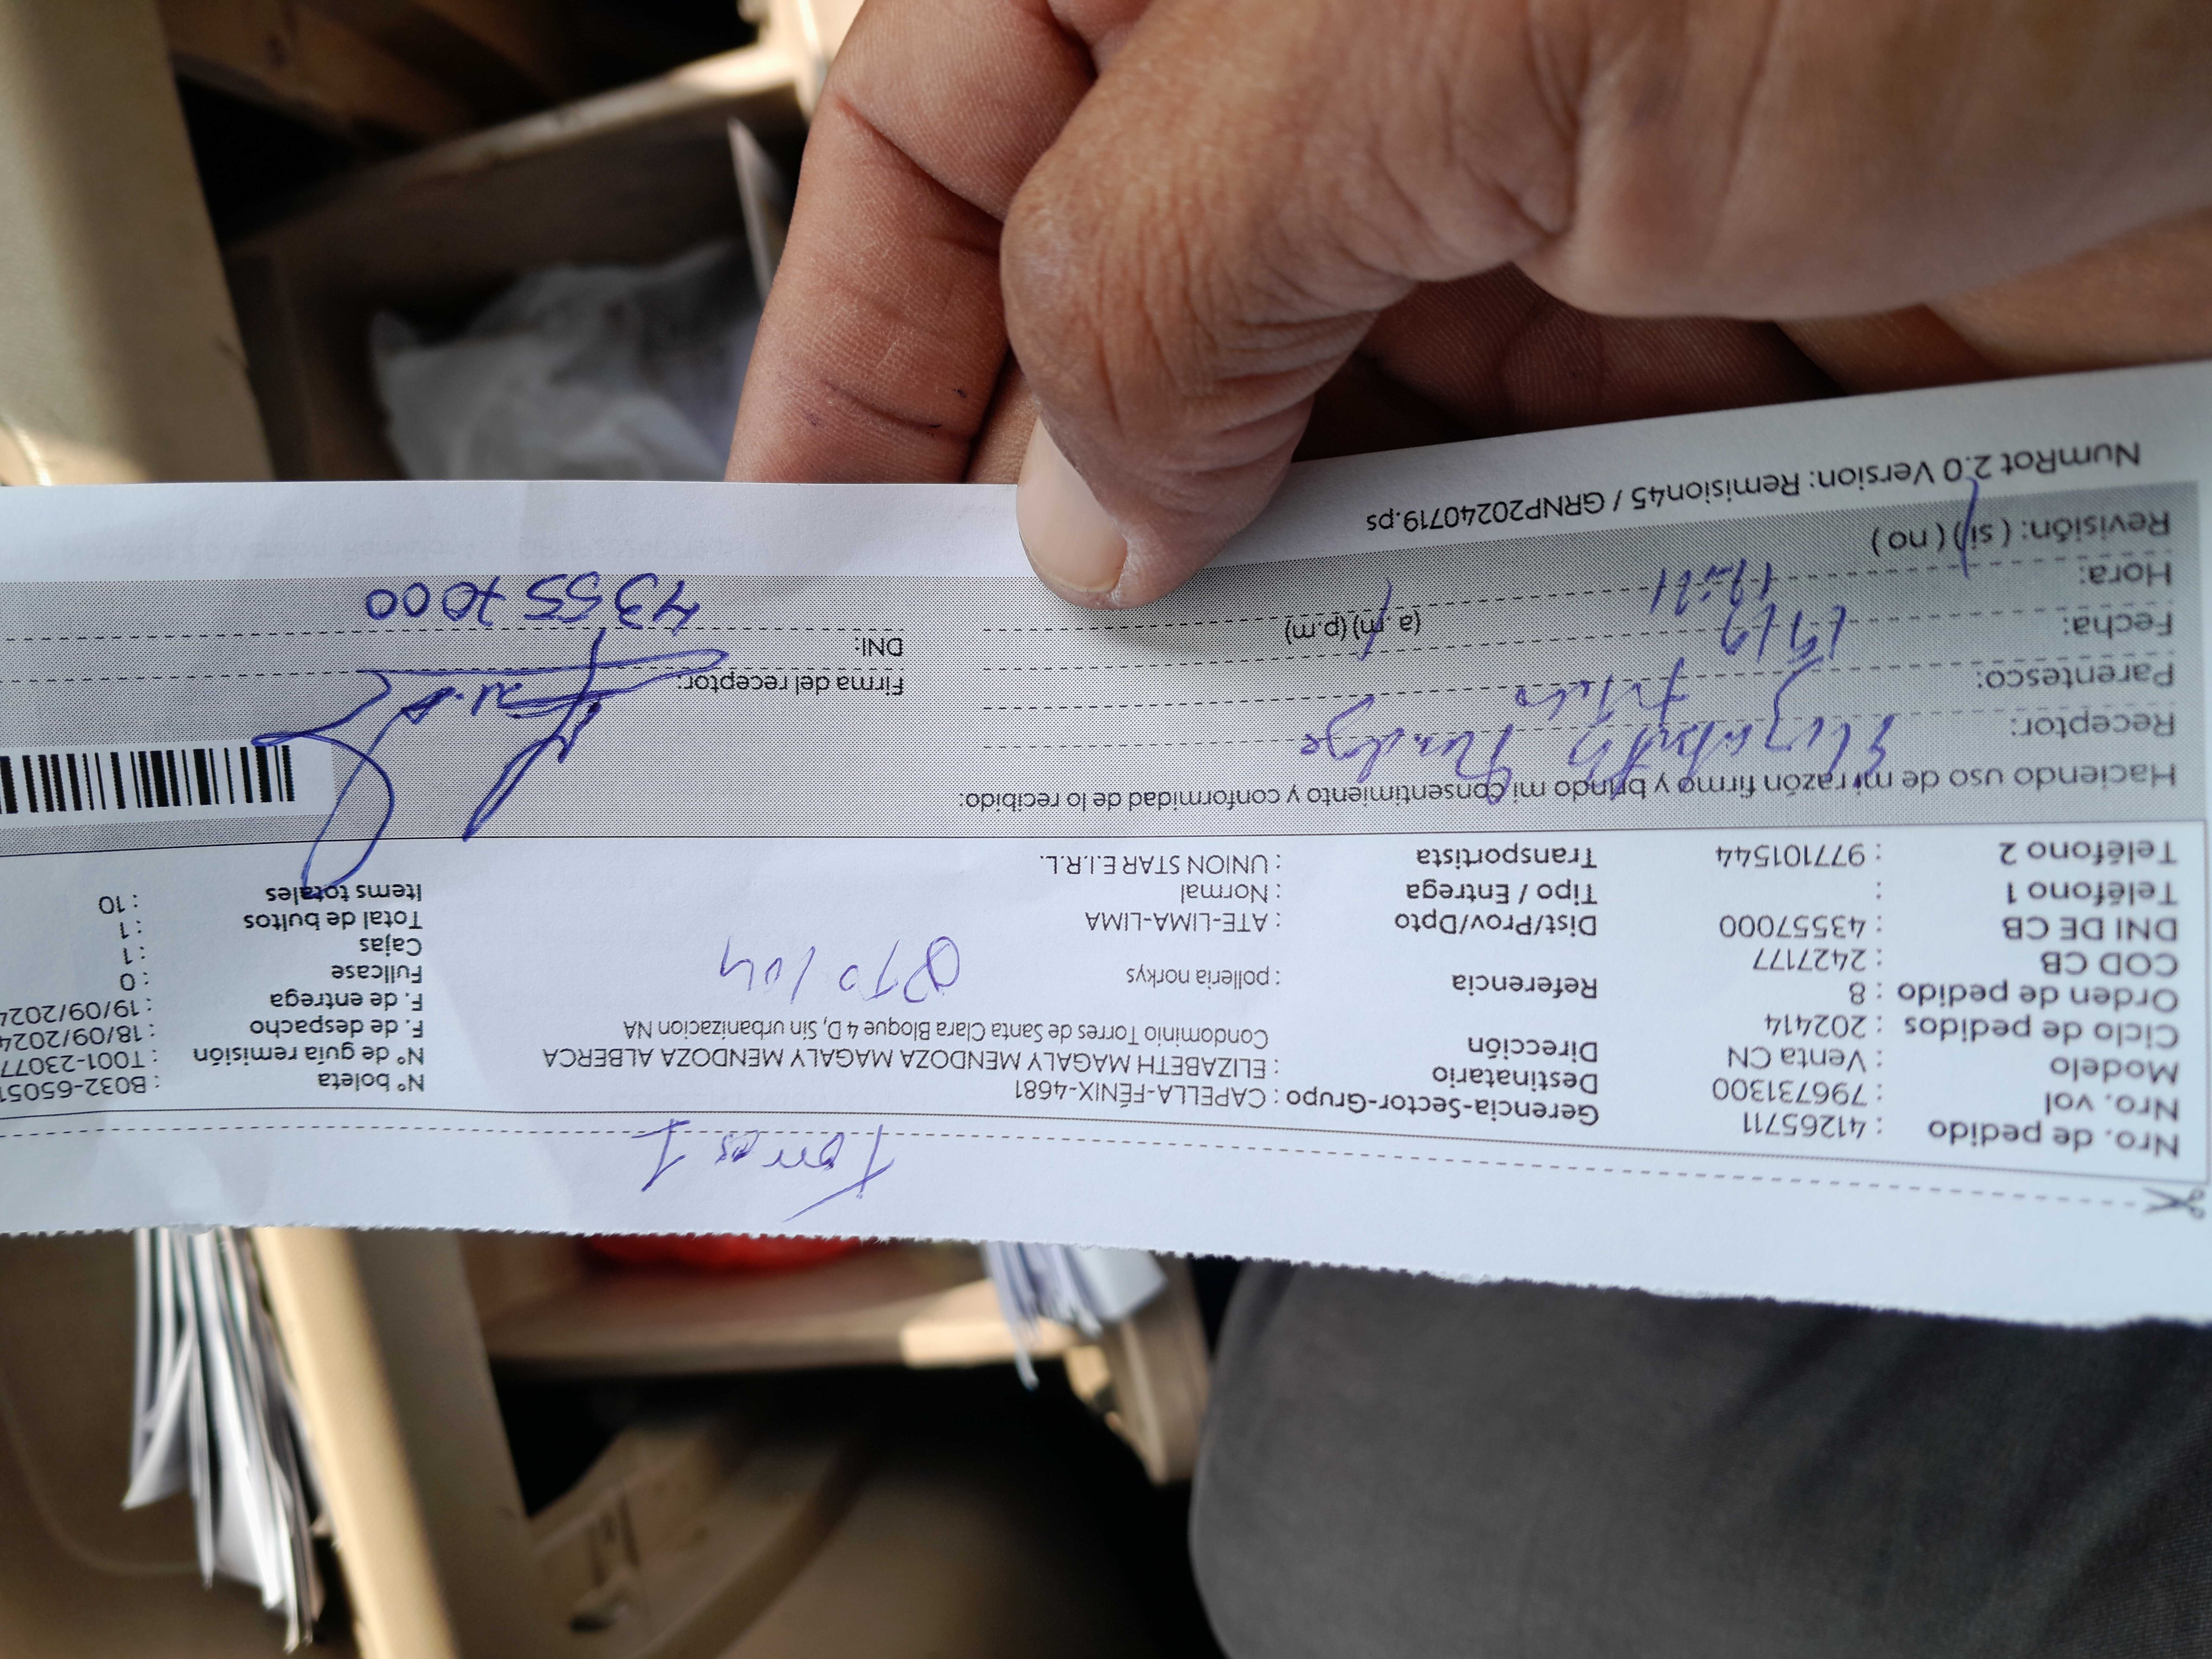 Torres I
Nro. de pedido : 41265711
Nro. vol : 796731300
Modelo : Venta CN
Ciclo de pedidos : 202414
Orden de pedido : 8
COD CB : 2427177
DNI DE CB : 43557000
Teléfono 1 :
Teléfono 2 : 977101544
Gerencia-Sector-Grupo : CAPELLA-FÉNIX-4681
Destinatario : ELIZABETH MAGALY MENDOZA MAGALY MENDOZA ALBERCA
Dirección Condominio Torres de Santa Clara Bloque 4 D, Sin urbanizacion NA
Referencia : polleria norkys
DTO 104
Dist/Prov/Dpto : ATE-LIMA-LIMA
Tipo / Entrega : Normal
Transportista : UNION STAR E.I.R.L.
N° boleta : B032-65051
N° de guía remisión : T001-23077
F. de despacho : 18/09/2024
F. de entrega : 19/09/2024
Fullcase : 0
Cajas : 1
Total de bultos : 1
Items totales : 10
Haciendo uso de mi razón firmo y brindo mi consentimiento y conformidad de lo recibido:
Receptor: Elizabeth
Parentesco:
Fecha: 19/9
Hora: (a.m) (p.m)
Revisión: ( si ) ( no )
Firma del receptor:
DNI: 43557000
NumRot 2.0 Version: Remision45 / GRNP20240719.ps